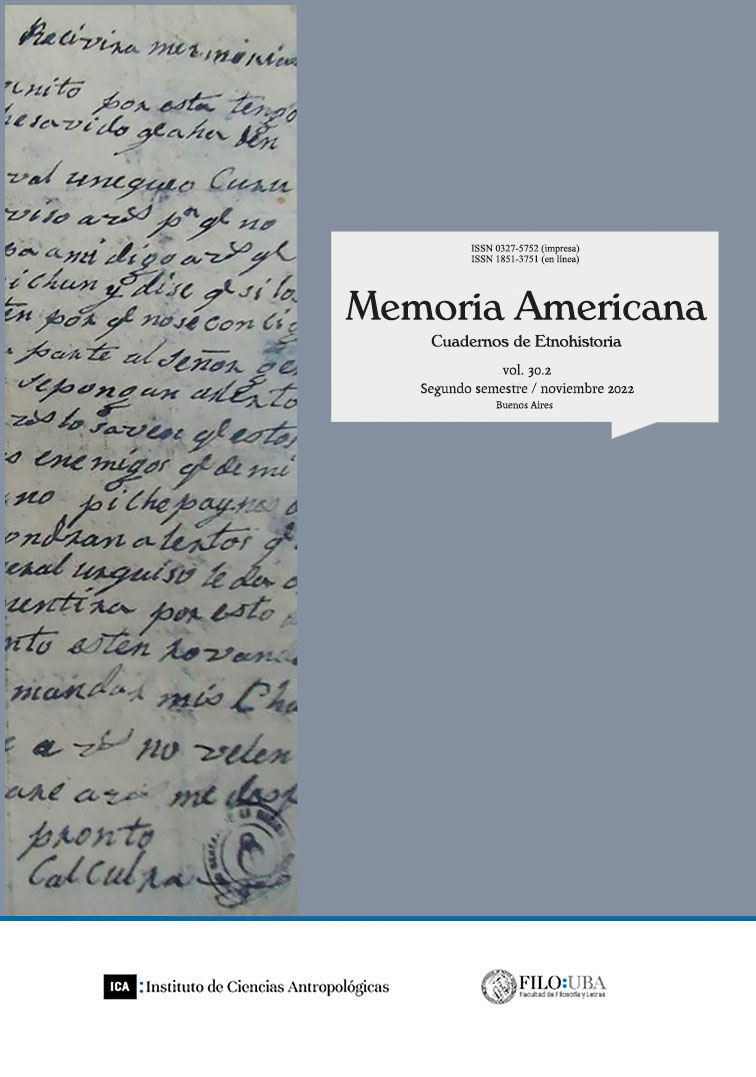 Recivira mermorias
unito por esta tengo
he savido ql aha
val unequeo Curu
viso a rd pn ql no
pa ami digo a rd ql
ichun y dise ql si lo
en por ql nose con
parte al señor ge
sepongan atento
lo saven ql estos
enemigos ql de mi
no pichepaynes
ondran atentos ql
eral urquiso le da
rentina por esto
nto esten rovand
mandar mis Cha
e a no velen
are me
pronto
CalCulra
ISSN 0327-5752 (impresa)
ISSN 1851-3751 (en línea)
Memoria Americana
Cuadernos de Etnohistoria
vol. 30.2
Segundo semestre / noviembre 2022
Buenos Aires
ICA :Instituto de Ciencias Antropológicas
FILO:UBA
Facultad de Filosofía y Letras